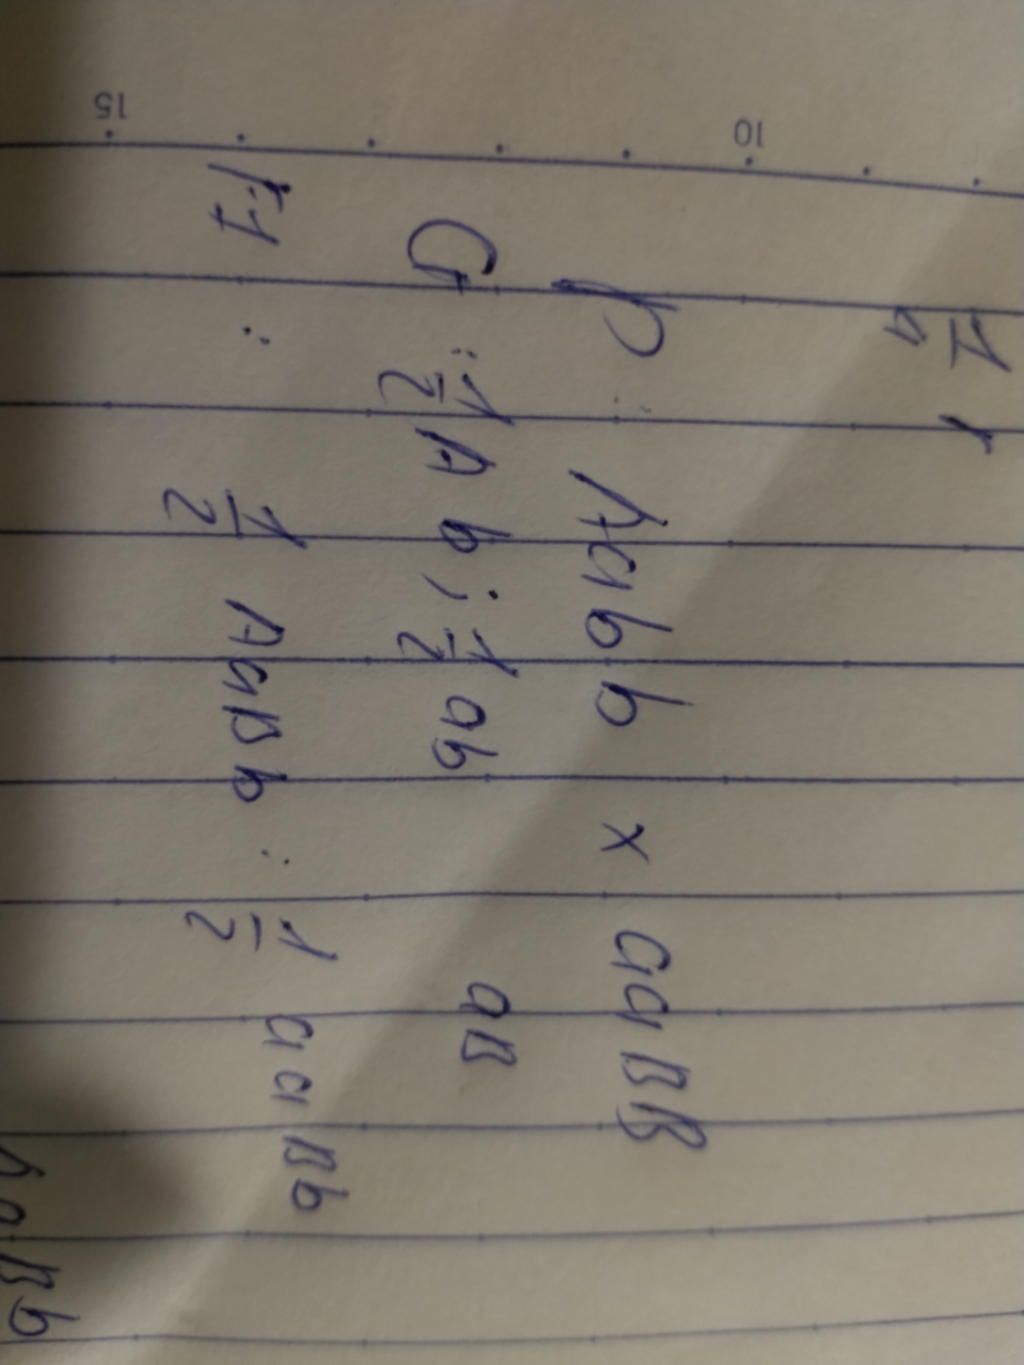 1/4
P : Aabb x aaBB
G : 1/2 Ab ; 1/2 ab aB
F1 : 1/2 AaBb : 1/2 aaBb
AaBb
10
15